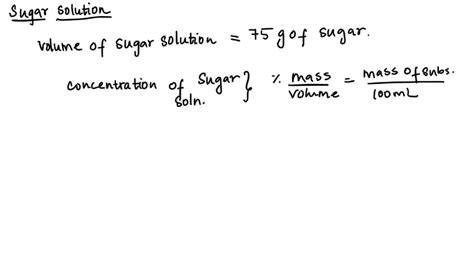 Sugar solution
Volume of sugar solution = 75 g of sugar.
concentration of sugar soln. } % mass/volume = mass of subs./100mL